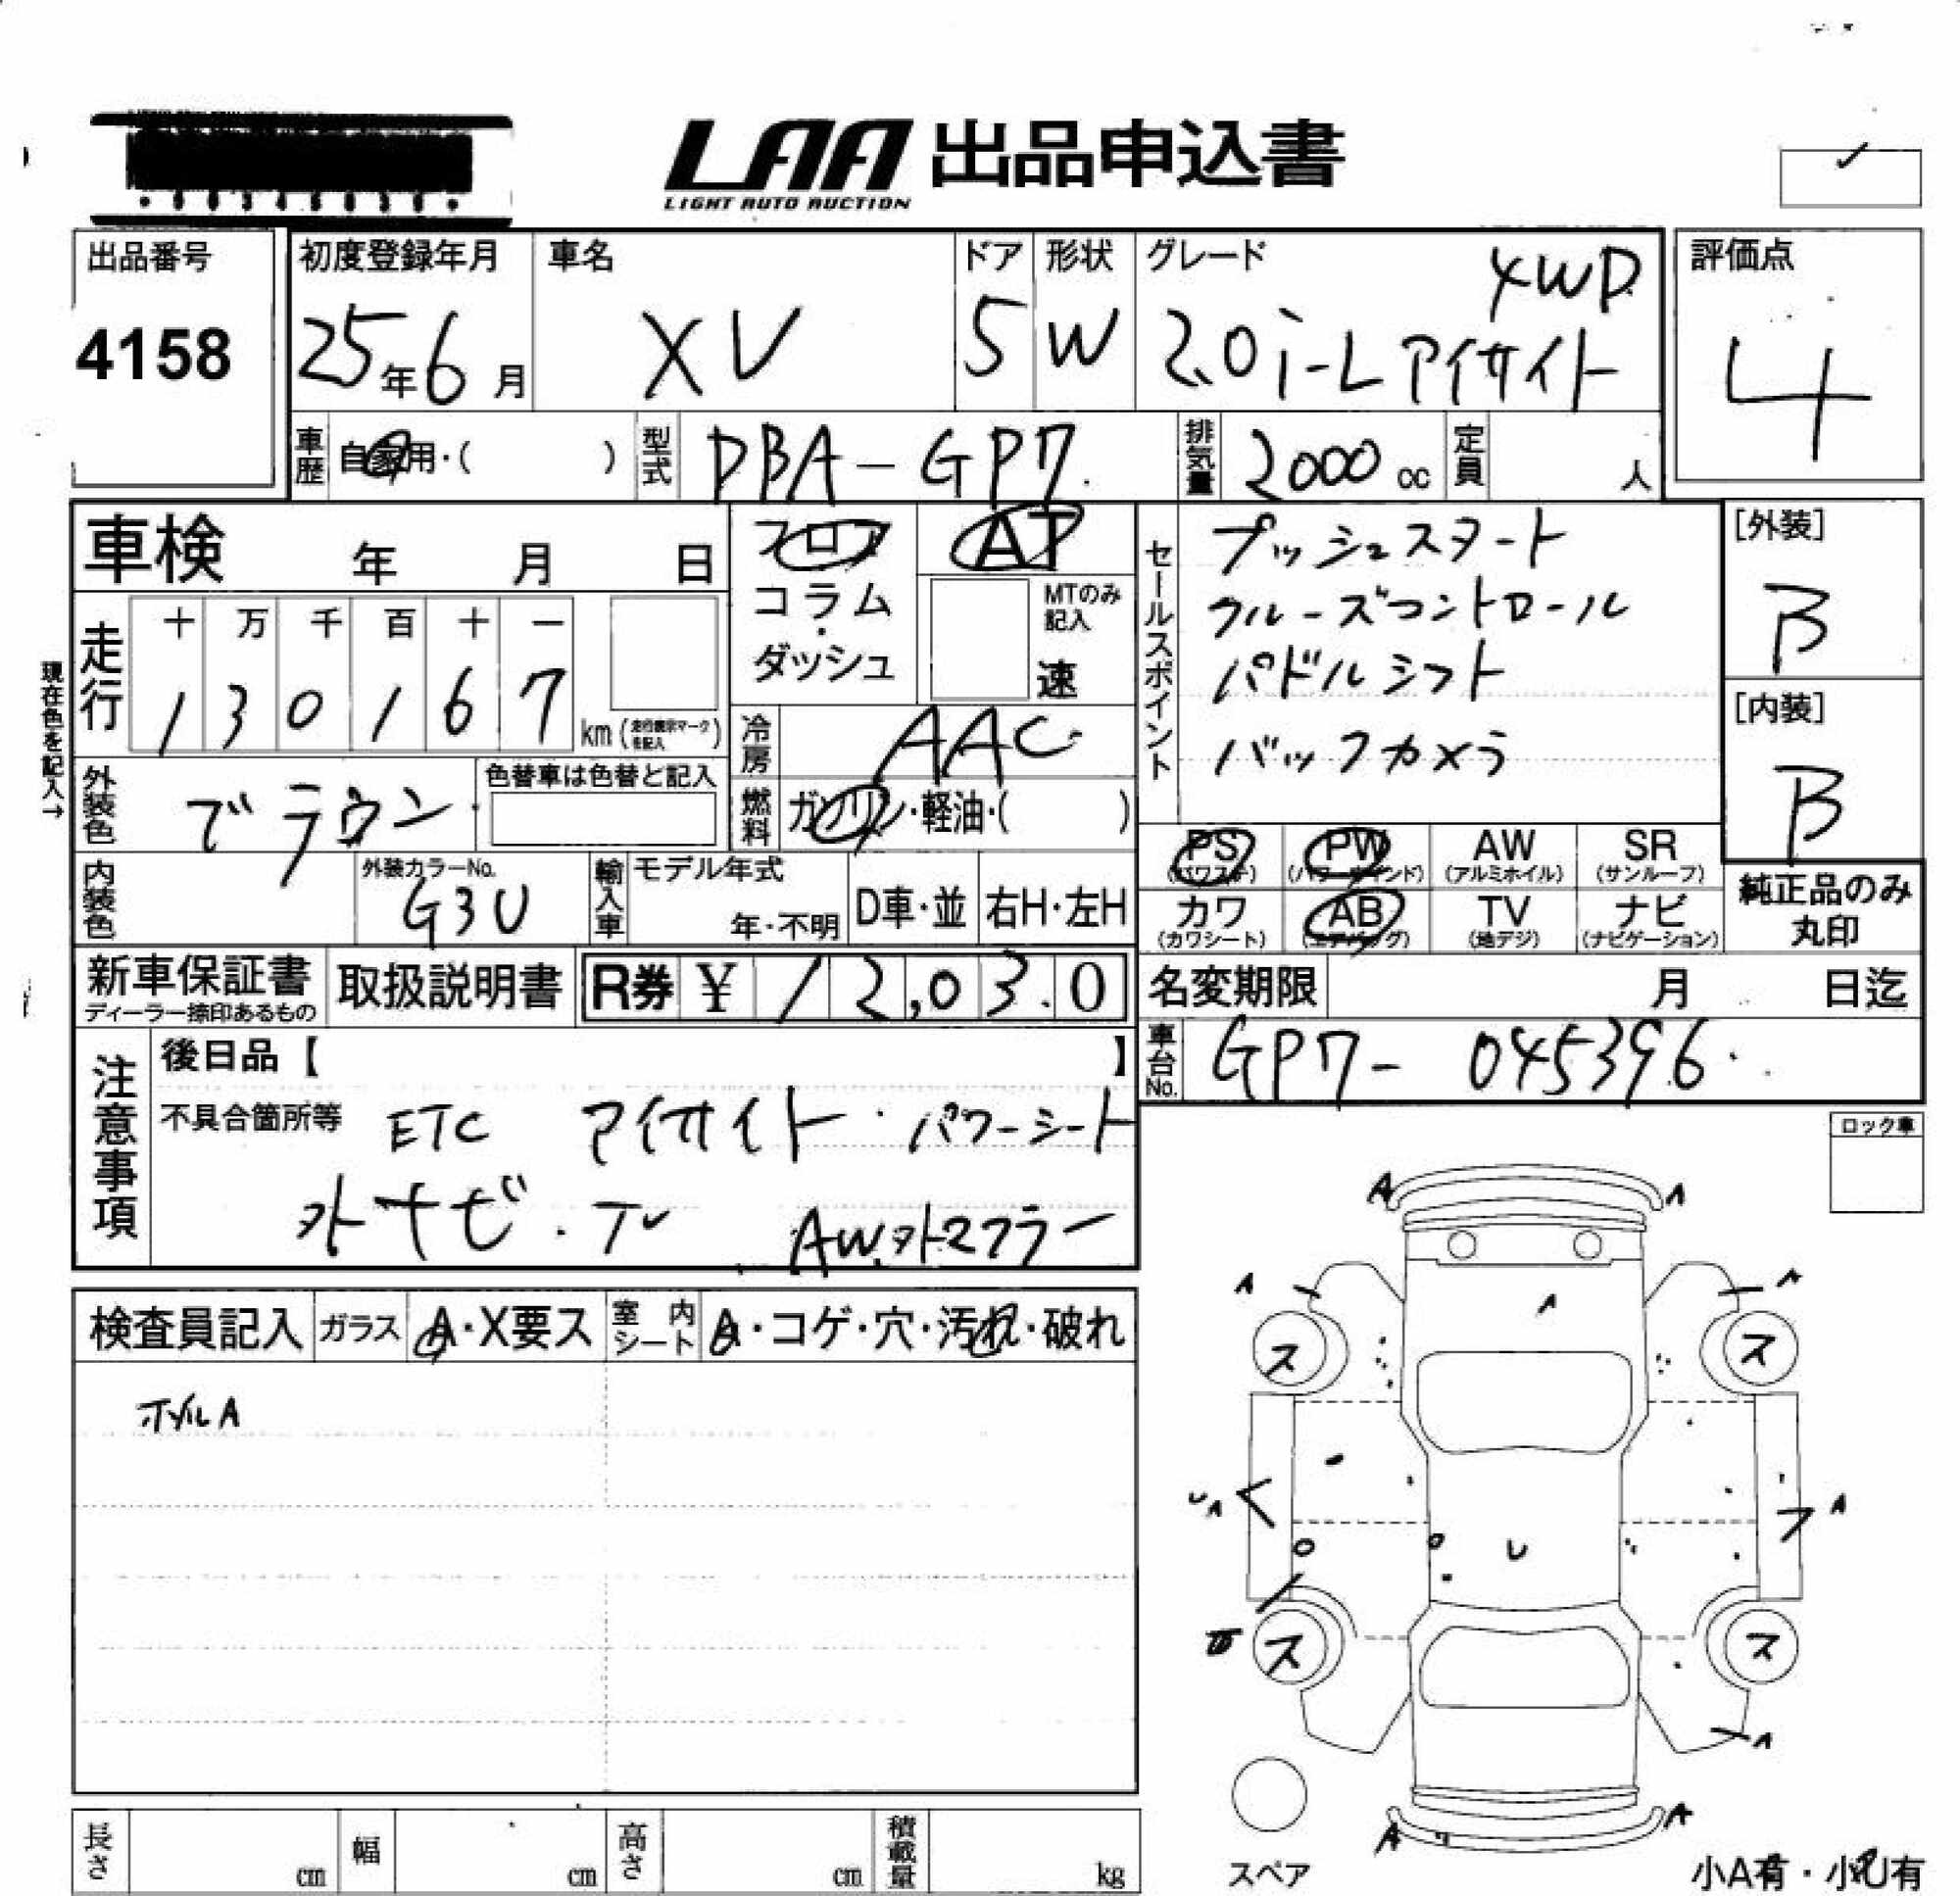 LAA 出品申込書
LIGHT AUTO AUCTION
出品番号
4158
初度登録年月
25年6月
車名
XV
ドア
5
形状
W
グレード
4WD
2.0i-L アイサイト
評価点
4
車歴
自家用・( )
型式
DBA-GP7
排気量
2000 cc
定員
人
車検 年 月 日
フロア
コラム・ダッシュ
AT
MTのみ記入
速
セールスポイント
プッシュスタート
クルーズコントロール
パドルシフト
バックカメラ
[外装]
B
[内装]
B
現在色を記入→
走行
十 万 千 百 十 一
1 3 0 1 6 7
km (走行表示マークを記入)
冷房
AAC
燃料
ガソリン・軽油・( )
外装色
ブラウン
色替車は色替と記入
内装色
外装カラーNo.
G3U
輸入車
モデル年式
年・不明
D車・並
右H・左H
PS (パワステ)
PW (パワーウインド)
AW (アルミホイル)
SR (サンルーフ)
カワ (カワシート)
AB (エアバッグ)
TV (地デジ)
ナビ (ナビゲーション)
純正品のみ丸印
新車保証書
ディーラー捺印あるもの
取扱説明書
R券 ¥ 12,030
名変期限 月 日迄
車台No.
GP7-045396
注意事項
後日品【 】
不具合箇所等
ETC アイサイト・パワーシート
外ナビ・TV AW 外マフラー
ロック車
検査員記入
ガラス A・X要ス
室内シート A・コゲ・穴・汚れ・破れ
ホイルA
A A
A A
A
ス ス
U A A
U
ス ス
A
A A
スペア
小A有・小U有
長さ cm
幅 cm
高さ cm
積載量 kg